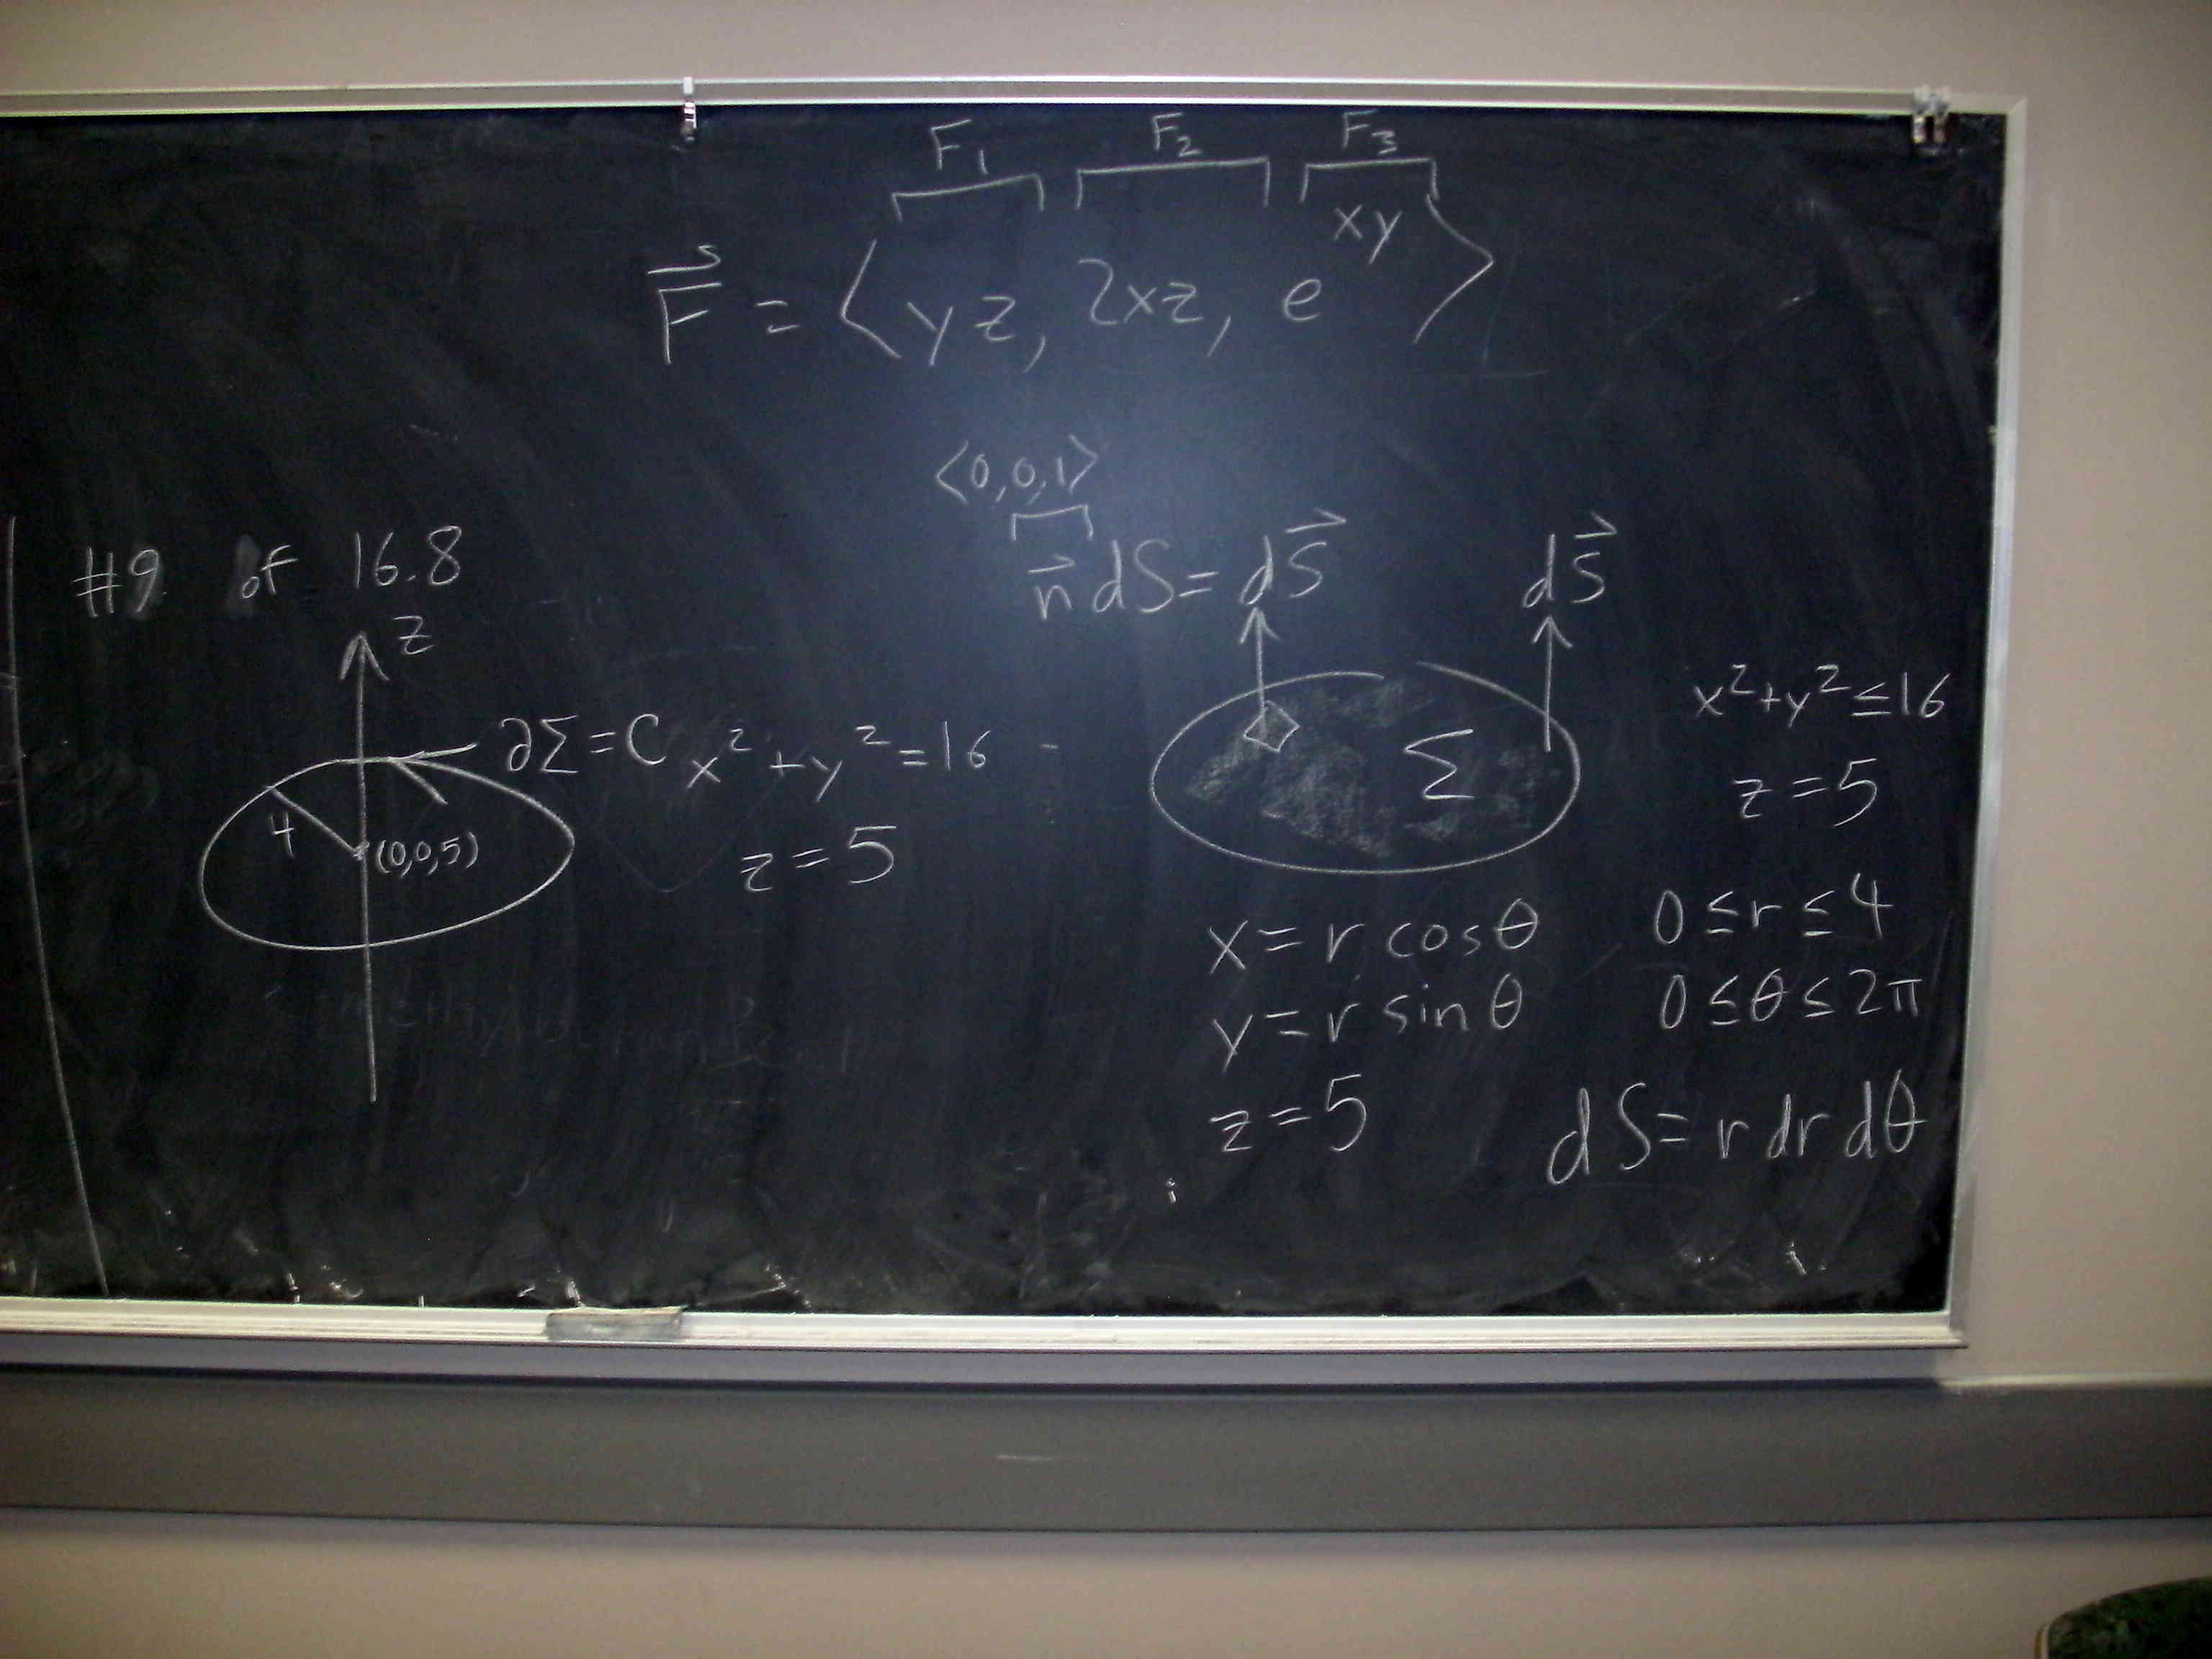 F₁ F₂ F₃
F⃗ = ⟨yz, 2xz, e^{xy}⟩
⟨0,0,1⟩
n⃗ dS = dS⃗
dS⃗
#9 of 16.8
z
∂Σ = C x² + y² = 16
z = 5
4
(0,0,5)
Σ
x² + y² ≤ 16
z = 5
x = r cosθ
y = r sinθ
z = 5
0 ≤ r ≤ 4
0 ≤ θ ≤ 2π
dS = r dr dθ